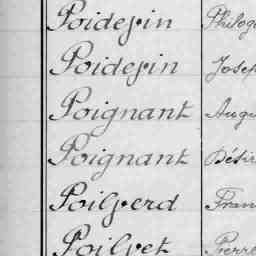 Poidevin Philog
Poidevin Josep
Poignant Augu
Poignant Dési
Poilverd Fran
Poilvet Pierre